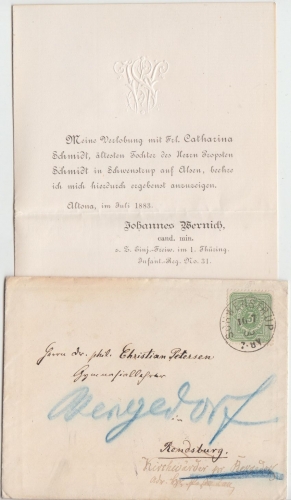 Meine Verlobung mit Frl. Catharina
Schmidt, ältesten Tochter des Herrn Propsten
Schmidt in Schwenstrup auf Alsen, beehre
ich mich hierdurch ergebenst anzuzeigen.
Altona, im Juli 1883.
Johannes Wernich,
cand. min.
z. Z. Einj.-Freiw. im 1. Thüring.
Infant.-Reg. No. 31.
Herrn Dr. phil. Christian Petersen
Gymnasiallehrer
in
Bergedorf
Rendsburg.
Kirchwärder